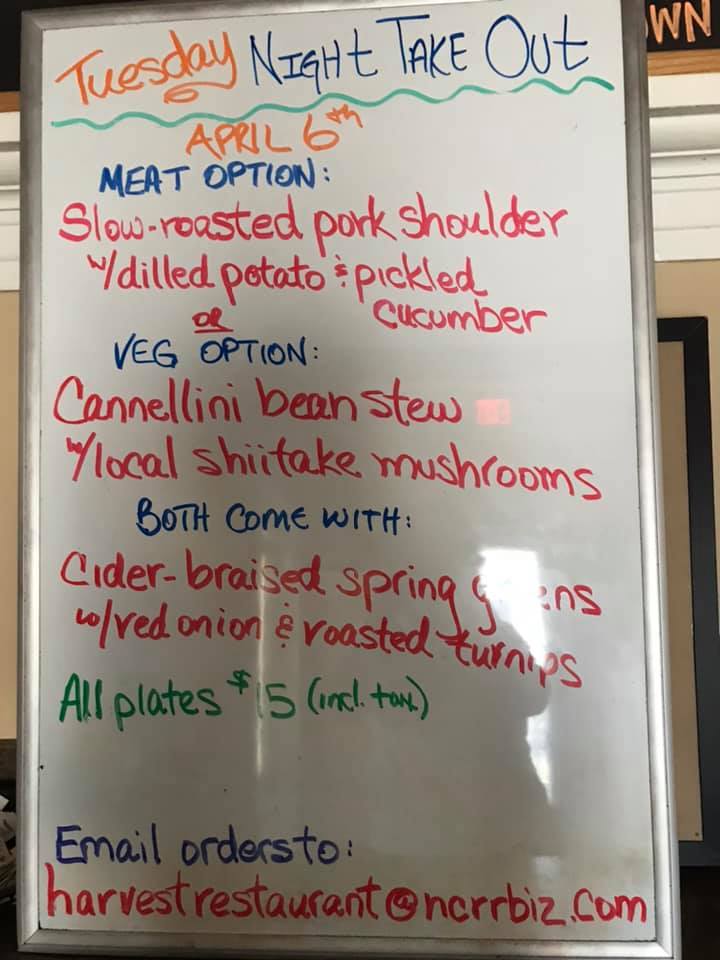 WN
Tuesday Night Take Out
April 6th
Meat Option:
Slow-roasted pork shoulder
w/dilled potato & pickled
cucumber
or
Veg Option:
Cannellini bean stew
w/local shiitake mushrooms
Both come with:
Cider-braised spring greens
w/red onion & roasted turnips
All plates $15 (incl. tax)
Email orders to:
harvestrestaurant@ncrrbiz.com